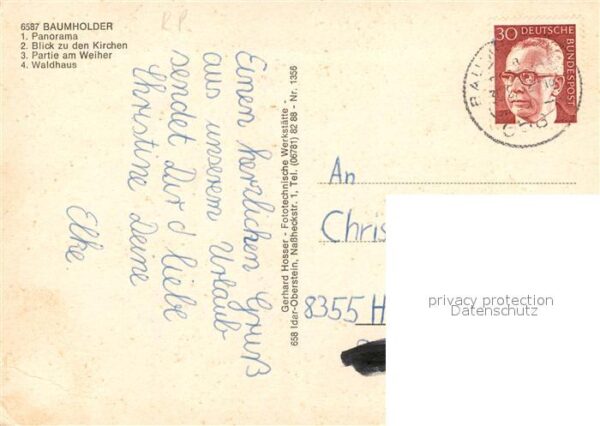 6587 BAUMHOLDER
1. Panorama
2. Blick zu den Kirchen
3. Partie am Weiher
4. Waldhaus
RP
Einen herzlichen Gruß
aus unserem Urlaub
sendet Dir liebe
Christine Deine
Elke
Gerhard Hosser - Fototechnische Werkstätte -
658 Idar-Oberstein, Naßheckstr. 1, Tel. (06781) 82 88 - Nr. 1356
30 DEUTSCHE
BUNDESPOST
An
Chris
8355 H
privacy protection
Datenschutz